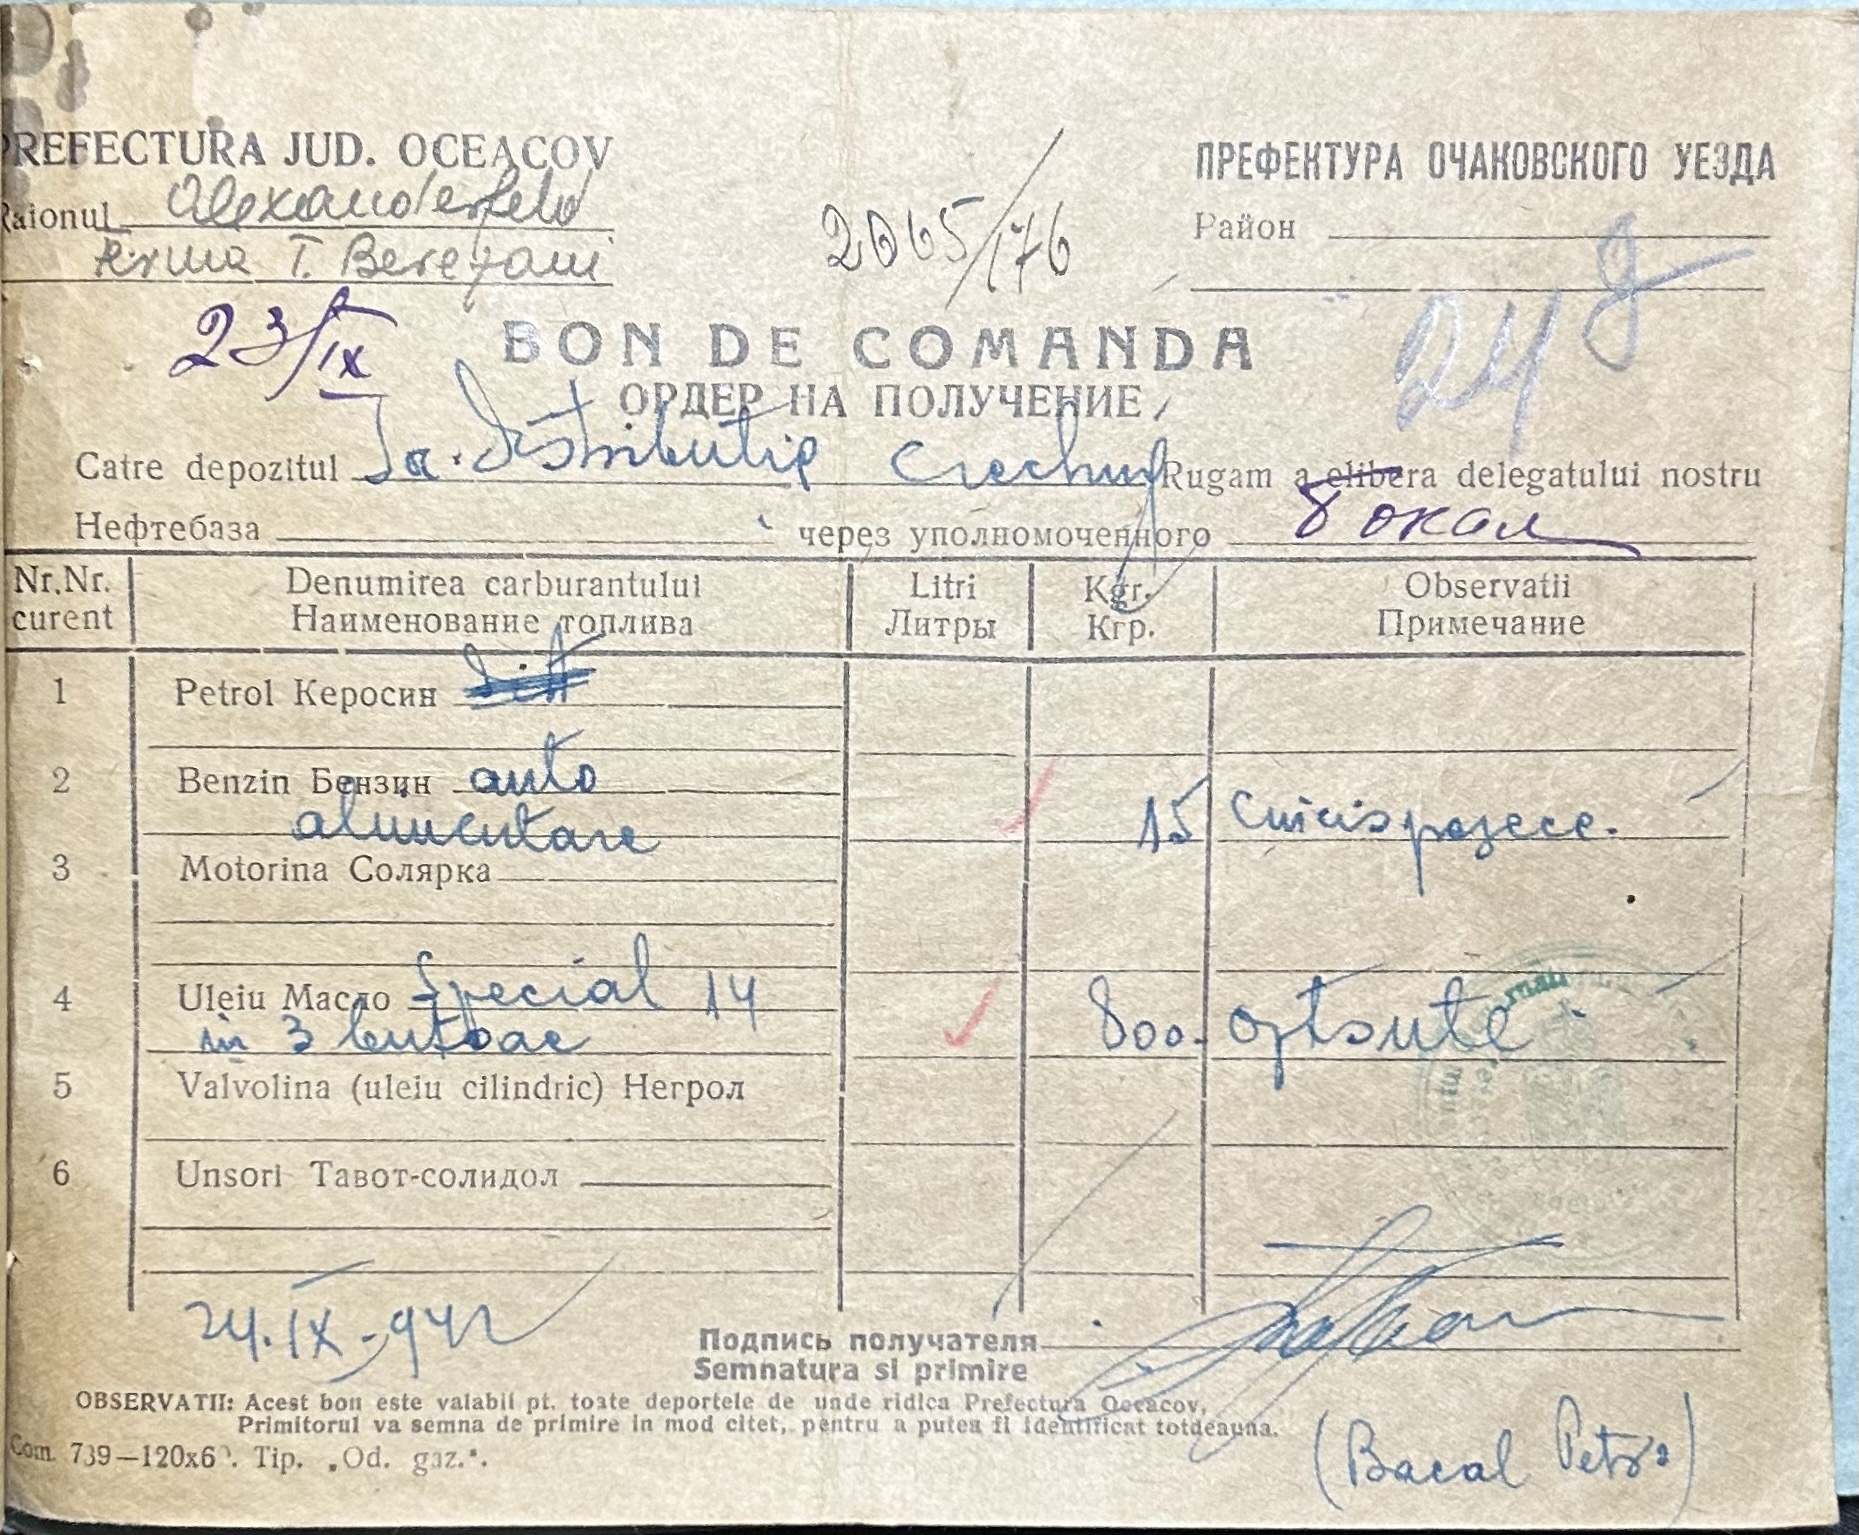 PREFECTURA JUD. OCEACOV
ПРЕФЕКТУРА ОЧАКОВСКОГО УЕЗДА
Raionul Alexanderfeld
2065/176
Район
Ferma T. Berezani
24
23/IX
BON DE COMANDA
ОРДЕР НА ПОЛУЧЕНИЕ
Catre depozitul Rugam a elibera delegatului nostru
Нефтебаза через уполномоченного
Nr.Nr. curent Denumirea carburantului Litri Kgr. Observatii
Наименование топлива Литры Кгр. Примечание
1 Petrol Керосин
2 Benzin Бензин auto
alimentare 15 Cincisprezece.
3 Motorina Солярка
4 Uleiu Масло Special 14
in 3 butoae 800. optsute
5 Valvolina (uleiu cilindric) Негрол
6 Unsori Тавот-солидол
24.IX.942
Подпись получателя
Semnatura si primire
OBSERVATII: Acest bon este valabil pt. toate deportele de unde ridica Prefectura Oceacov,
Primitorul va semna de primire in mod citet, pentru a putea fi identificat totdeauna.
(Bacal Petre)
Com. 739—120x60. Tip. „Od. gaz.".